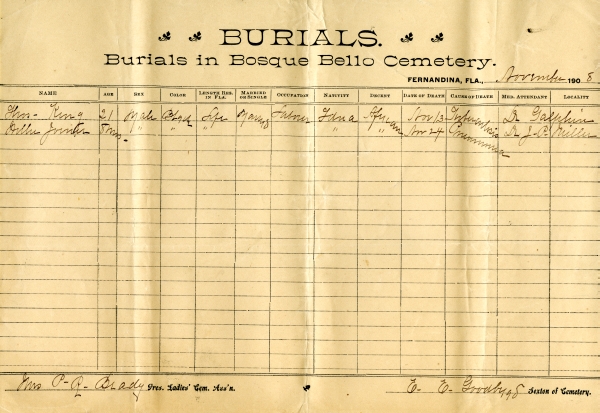 BURIALS.
Burials in Bosque Bello Cemetery.
FERNANDINA, FLA., November 1908
NAME AGE SEX COLOR LENGTH RES. IN FLA. MARRIED OR SINGLE OCCUPATION NATIVITY DECENT DATE OF DEATH CAUSE OF DEATH MED. ATTENDANT LOCALITY
Thos- King 21 Male Life Labor Fdna African Nov 13 Tuberculosis Dr Galphin
8 mos " " " " " Nov 24 Pneumonia Dr J. C. Miller
Mrs P- R- Brady Pres. Ladies' Cem. Ass'n. E- E- Sexton of Cemetery.